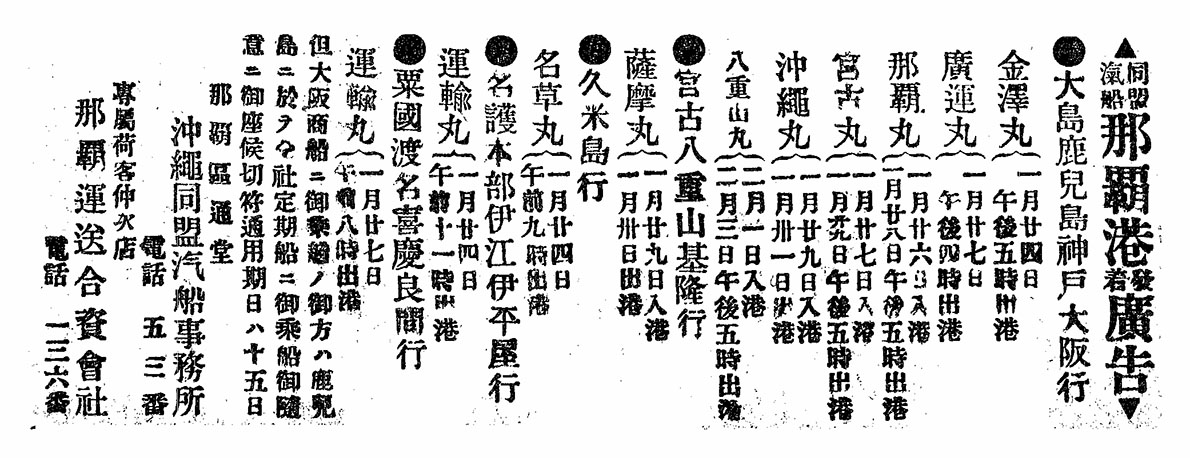 ▲同盟汽船那覇港發着廣告▼
●大島鹿兒島神戸大阪行
金澤丸
一月廿四日
午後五時出港
廣運丸
一月廿七日
午後四時出港
那覇丸
一月廿六日入港
一月廿八日午後五時出港
宮古丸
一月廿七日入港
一月廿九日午後五時出港
沖繩丸
一月廿九日入港
一月卅一日出港
八重山丸
二月一日入港
二月三日午後五時出港
●宮古八重山基隆行
薩摩丸
一月廿九日入港
一月卅日出港
●久米島行
名草丸
一月廿四日
午前九時出港
●名護本部伊江伊平屋行
運輸丸
一月廿四日
午前十一時出港
●粟國渡名喜慶良間行
運輸丸
一月廿七日
午前八時出港
但大阪商船ニ御乘越ノ御方ハ鹿兒
島ニ於テ仝社定期船ニ御乘船御隨
意ニ御座候切符通用期日ハ十五日
那覇區通堂
沖繩同盟汽船事務所
電話 五三番
專屬荷客仲次店
那覇運送合資會社
電話 一三六番